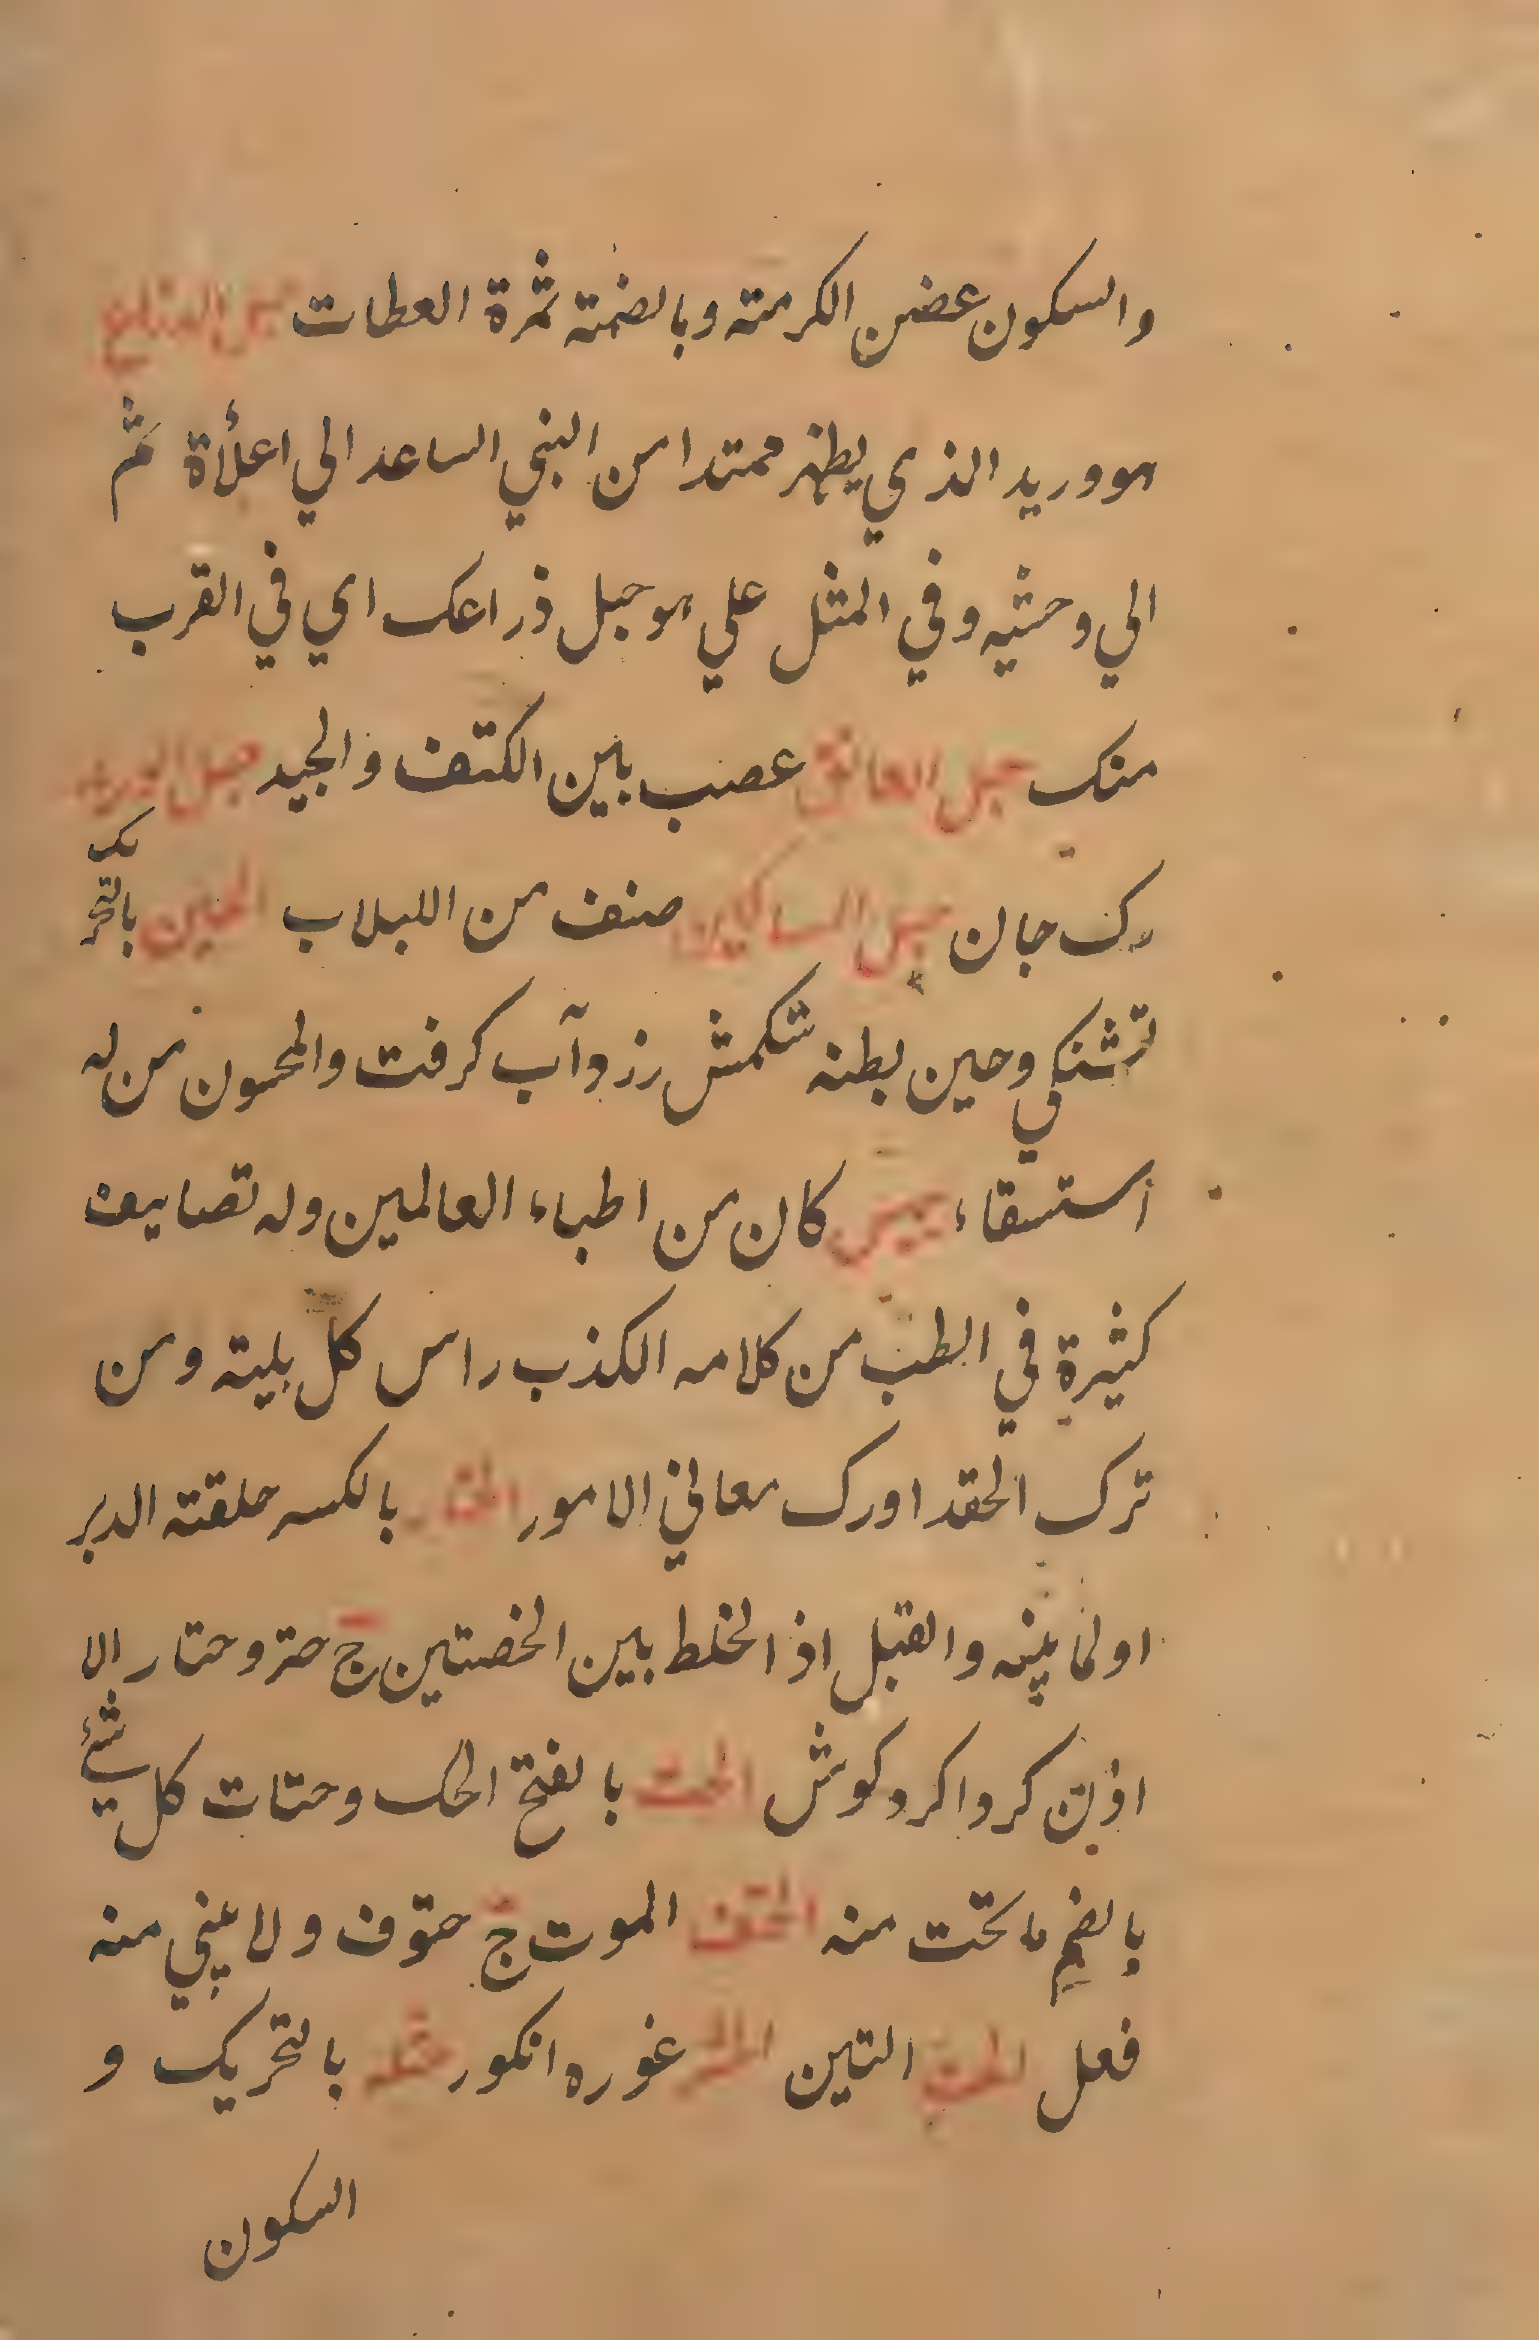 والسكون عضن الكرمته وبالضمته ثمرة العطات حبل الذراع
هو وريد الذي يظهر ممتدا من البنجي الساعد الي اعلأة ثم
الي وحشيه وفي المثل علي هو حبل ذراعك اي في القرب
منك حبل العاتق عصب بين الكتف والجيد حبل الوريد
رک جان حبل المساكين صنف من اللبلاب الحبن بالتحريك
تشنكي وحبن بطنه شكمش زرد آب كرفت والمحبون من له
استسقاء كان من اطباء العالمين وله تصانيف
كثيرة في الطب من كلامه الكذب راس كل بليته ومن
ترک الحقد اورک معاني الامور الحتار بالكسر حلقته الدبر
او لما بينه والقبل اذ الخلط بين الخصتين ج حتر وحتار الا
اذن كرد اكرد كوش الحت بالفتح الحک وحتات كل شيئ
بالضم ما تحت منه الحتف الموت ج حتوف ولا يبني منه
فعل التين غوره انكور بالتحريک و
السكون